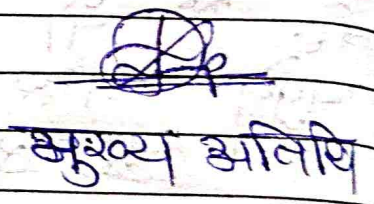 मुख्य अतिथि